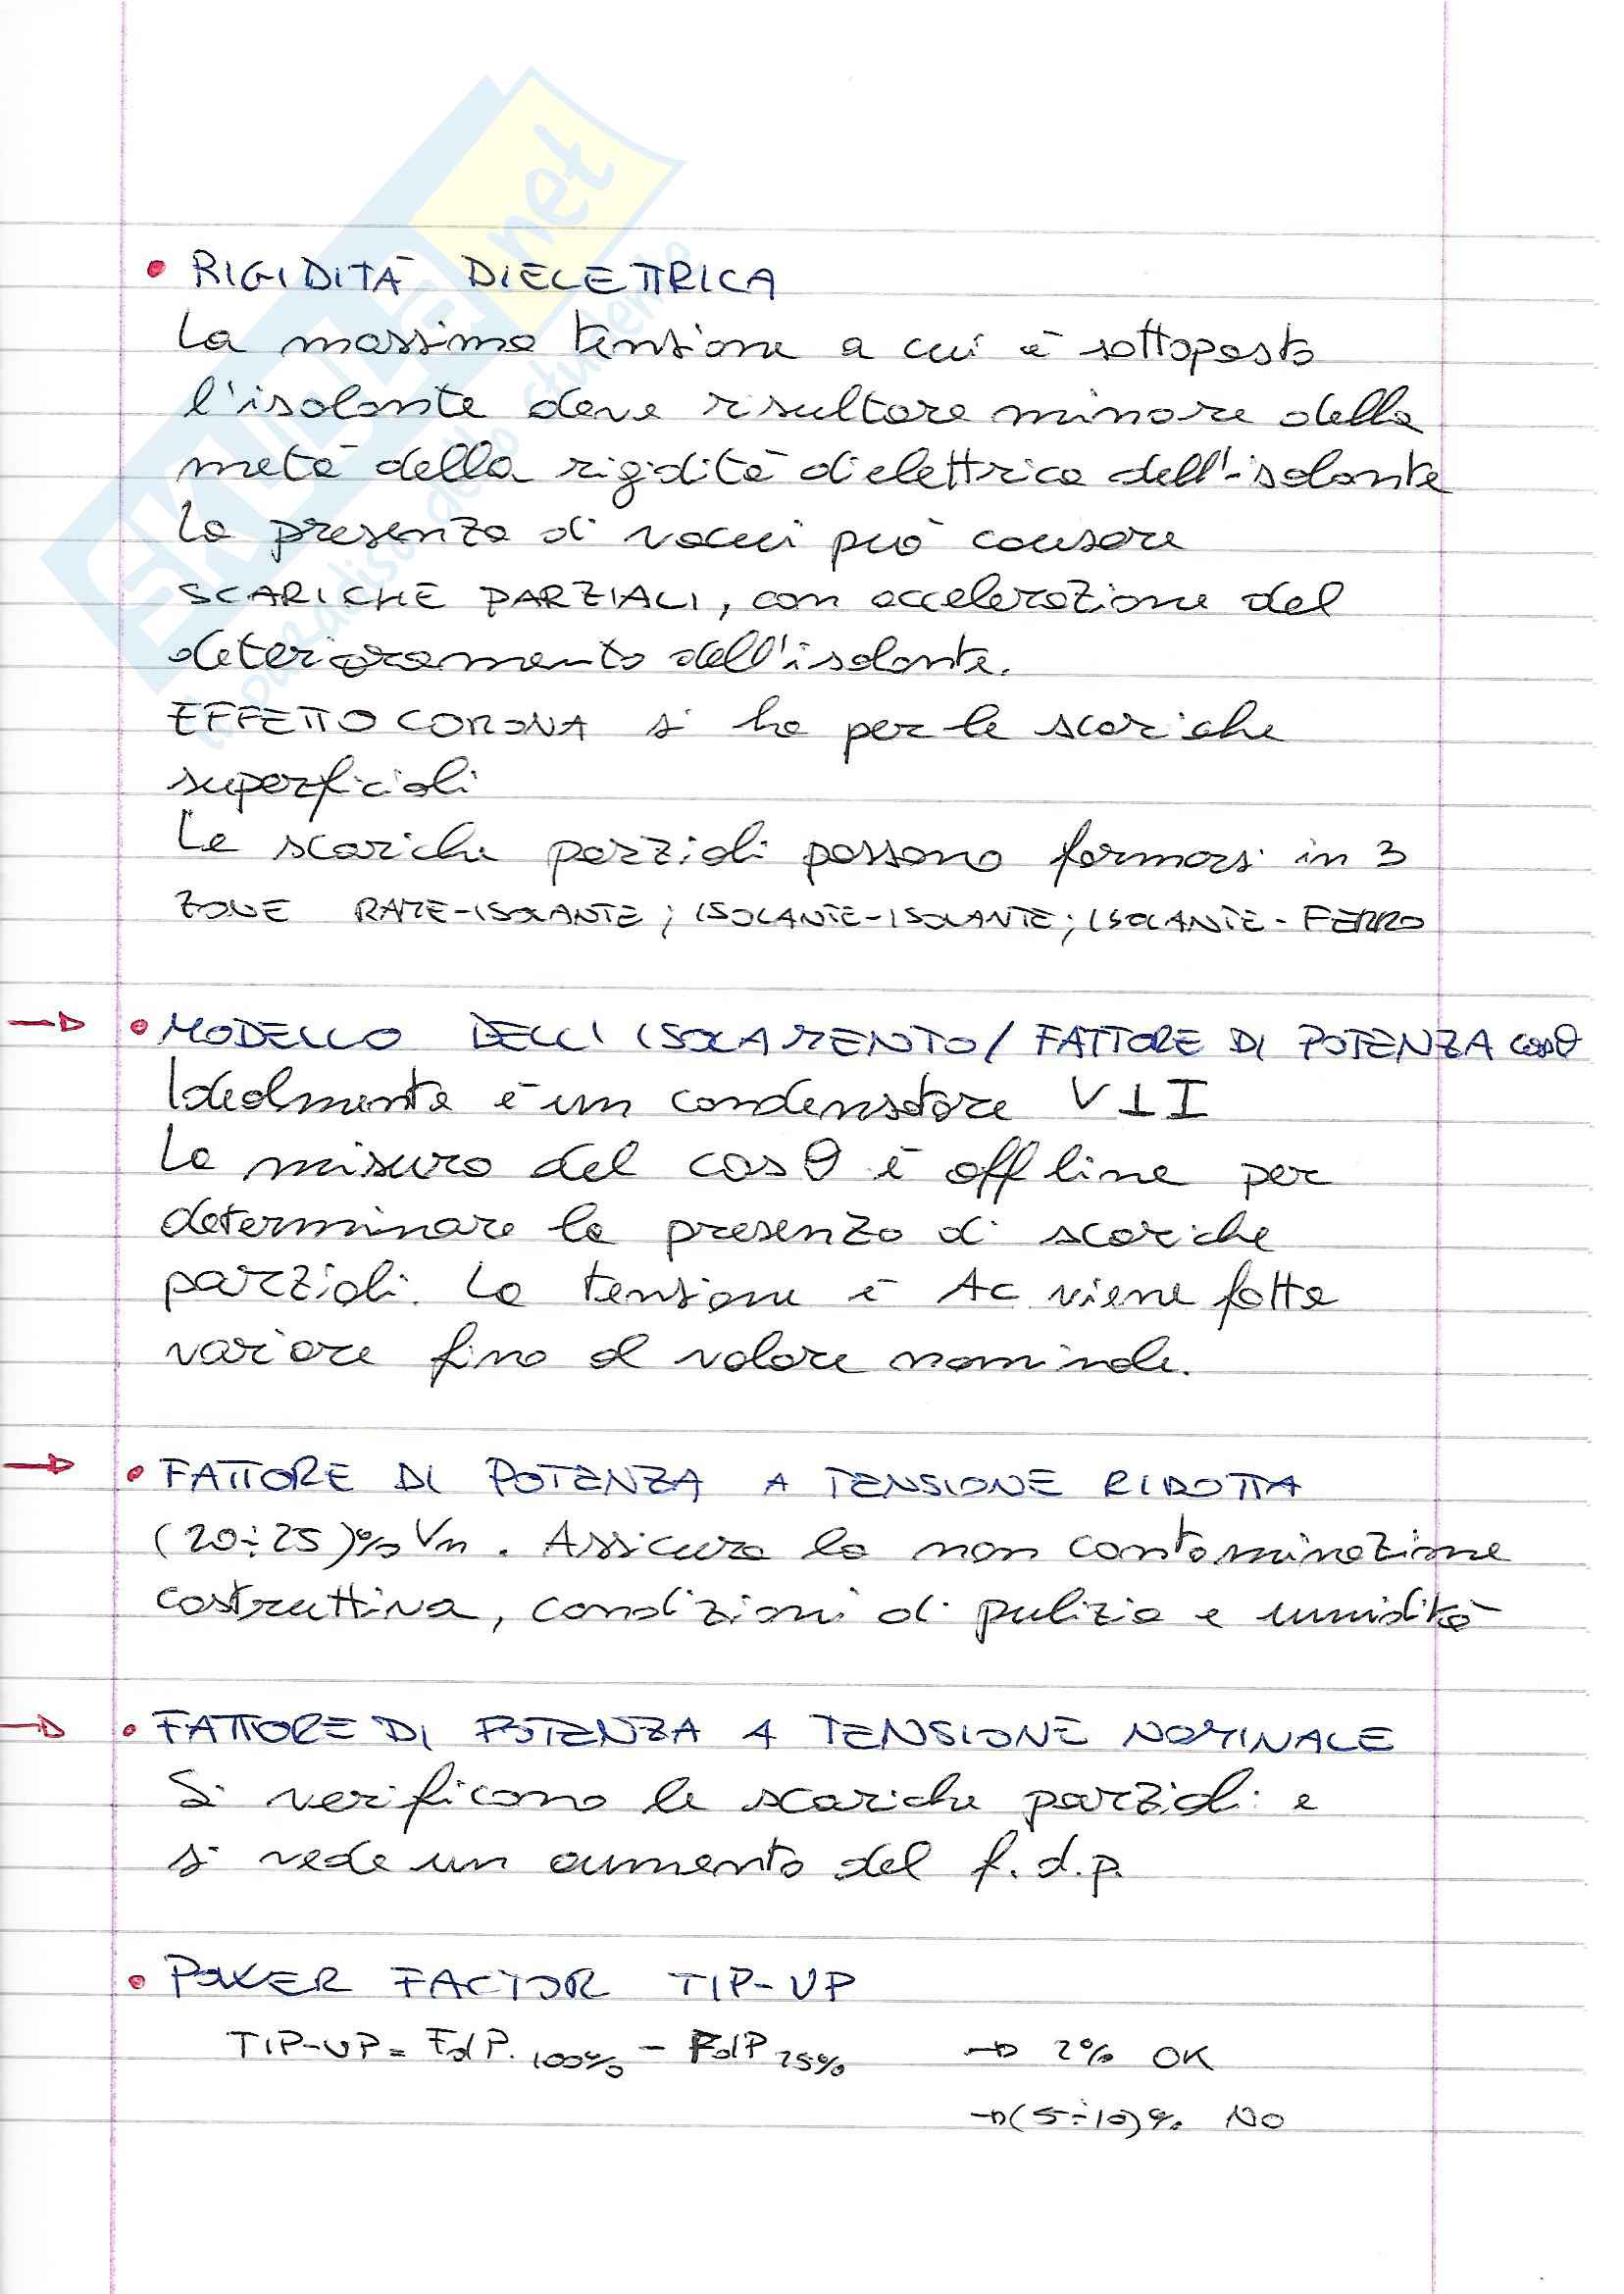 • RIGIDITÀ DIELETTRICA
La massima tensione a cui è sottoposto
l'isolante deve risultare minore della
metà della rigidità dielettrica dell'isolante
La presenza di vacui può causare
SCARICHE PARZIALI, con accelerazione del
deterioramento dell'isolante.
EFFETTO CORONA si ha per le scariche
superficiali
Le scariche parziali possono formarsi in 3
ZONE RAME-ISOLANTE; ISOLANTE-ISOLANTE; ISOLANTE-FERRO
→ • MODELLO DELL'ISOLAMENTO/FATTORE DI POTENZA cosθ
Idealmente è un condensatore V⊥I
La misura del cosθ è off line per
determinare la presenza di scariche
parziali. La tensione è AC viene fatta
variare fino al valore nominale.
→ • FATTORE DI POTENZA A TENSIONE RIDOTTA
(20÷25)% Vn. Assicura la non contaminazione
costruttiva, condizioni di pulizia e umidità
→ • FATTORE DI POTENZA A TENSIONE NOMINALE
Si verificano le scariche parziali e
si vede un aumento del f.d.p.
• POWER FACTOR TIP-UP
TIP-UP = FdP. 100% - FdP 25% → 2% OK
→ (5÷10)% NO
SKUOLA.net
il paradiso dello studente